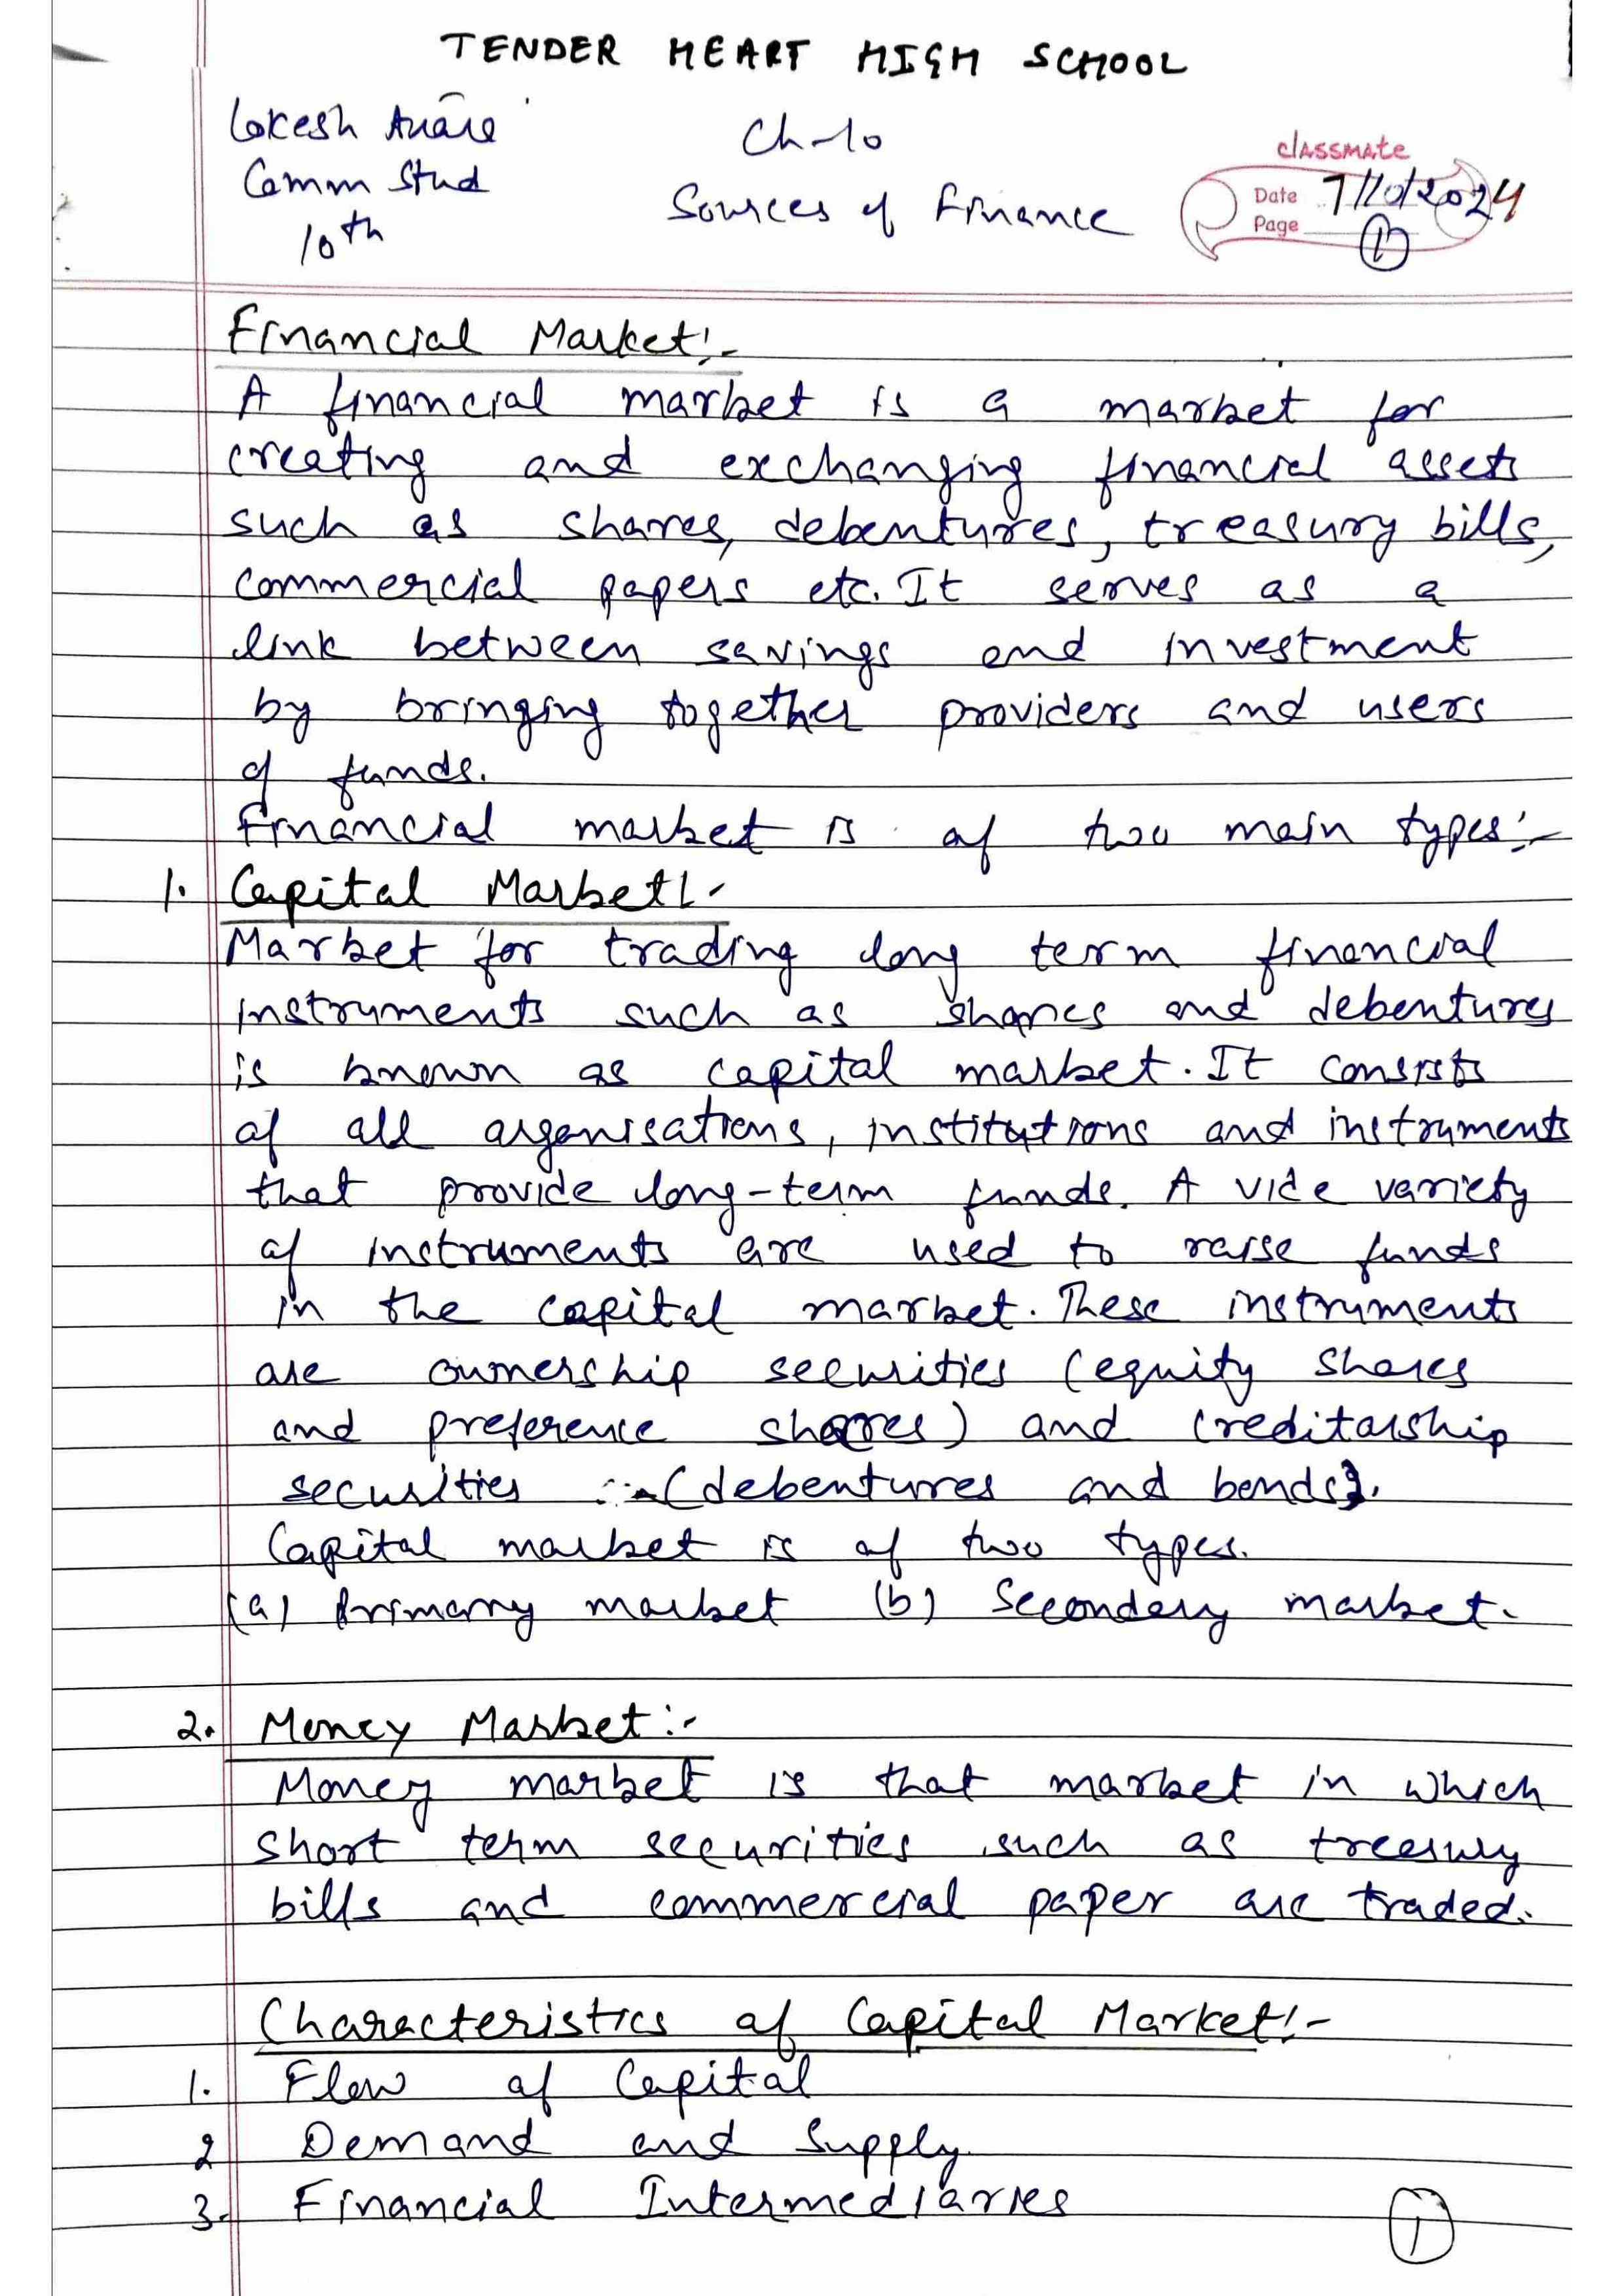 TENDER HEART HIGH SCHOOL
Lokesh
Comm Stud
10th
Ch-10
Sources of Finance
classmate
Date 7/10/2024
Page 1
Financial Market:-
A financial market is a market for
creating and exchanging financial assets
such as shares, debentures, treasury bills,
commercial papers etc. It serves as a
link between savings and investment
by bringing together providers and users
of funds.
Financial market is of two main types:-
1. Capital Market:-
Market for trading long term financial
instruments such as shares and debentures
is known as capital market. It consists
of all organisations, institutions and instruments
that provide long-term funds. A vide variety
of instruments are used to raise funds
in the capital market. These instruments
are ownership securities (equity shares
and preference shares) and creditorship
securities (debentures and bonds).
Capital market is of two types.
(a) Primary market (b) Secondary market.
2. Money Market:-
Money market is that market in which
short term securities such as treasury
bills and commercial paper are traded.
Characteristics of Capital Market:-
1. Flow of Capital
2 Demand and Supply
3. Financial Intermediaries
1